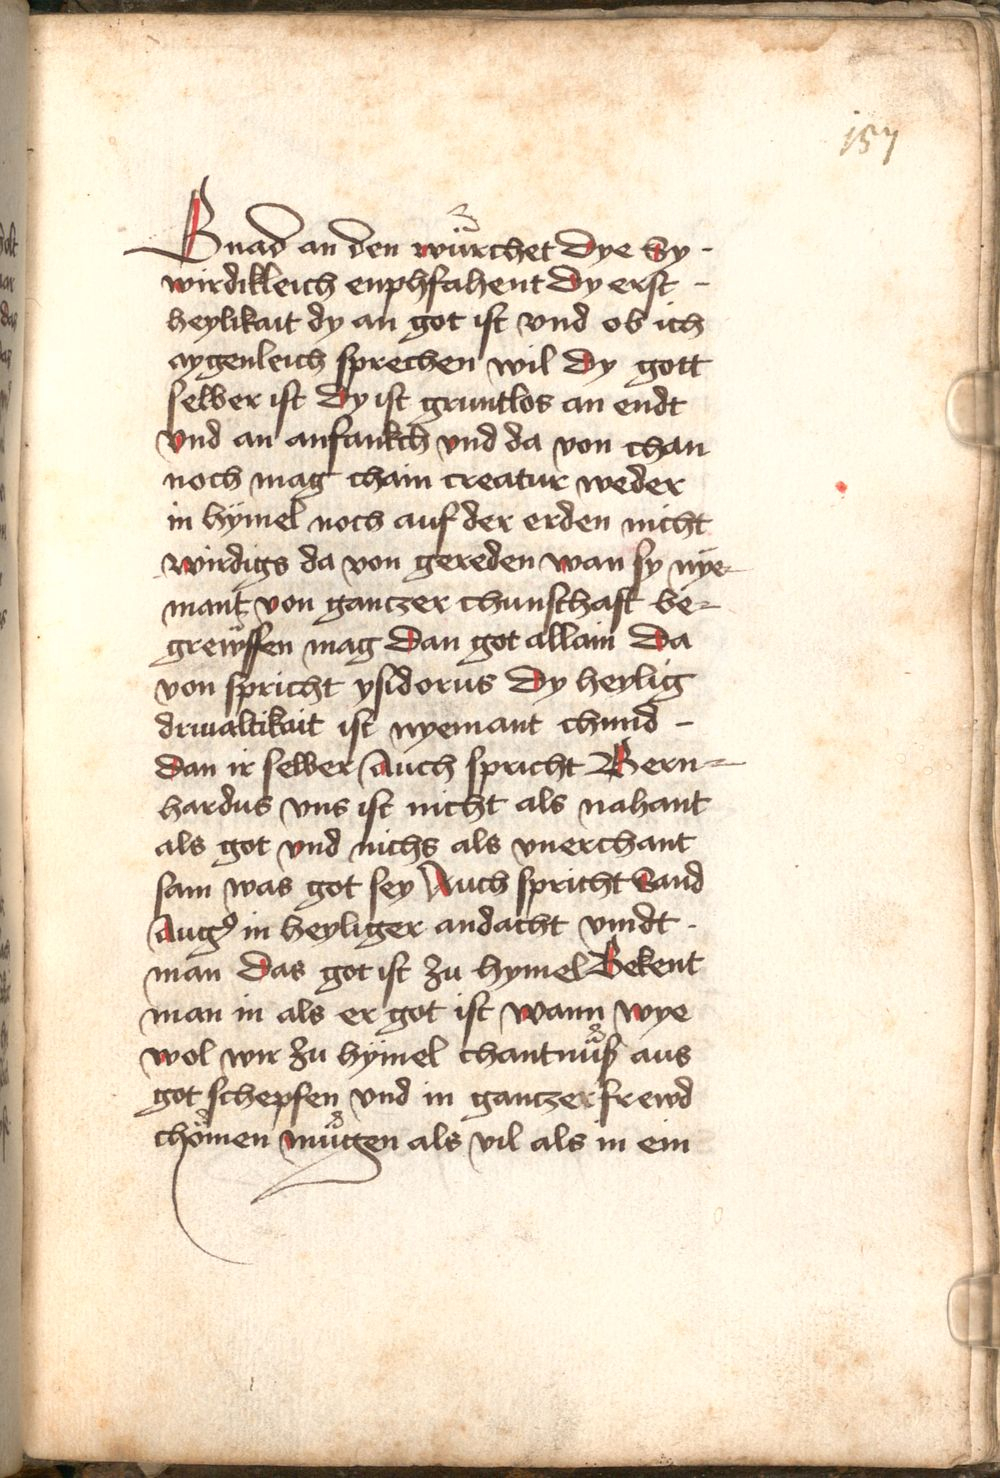 157
Gnad an den würchet Dye Sy
wirdikleich enphfahent Dy erst
heylikait dy an got ist vnd ob ich
aygenleich sprechen wil Dy gott
selber ist Dy ist gruntlos an endt
vnd an anfankch vnd da von chan
noch mag chain creatur weder
in hÿmel noch auf der erden nicht
wirdigs da von gereden wan sy nÿe-
mant von ganczer chunschaft be-
greÿffen mag Dan got allain Da
von spricht ysidorus Dy heylig
driualtikait ist nyemant chund
Dan ir selber Auch spricht Bern-
hardus vns ist nicht als nahant
als got vnd nichs als vnerchant
sam was got sey Auch spricht Sand
Aug9 in heyliger andacht vindt
man Das got ist zu hymel Bekent
man in als er got ist wann wye
wol wir zu hÿmel chantnüß aus
got schepfen vnd in ganczer frewd
chömen mügen als vil als in ein